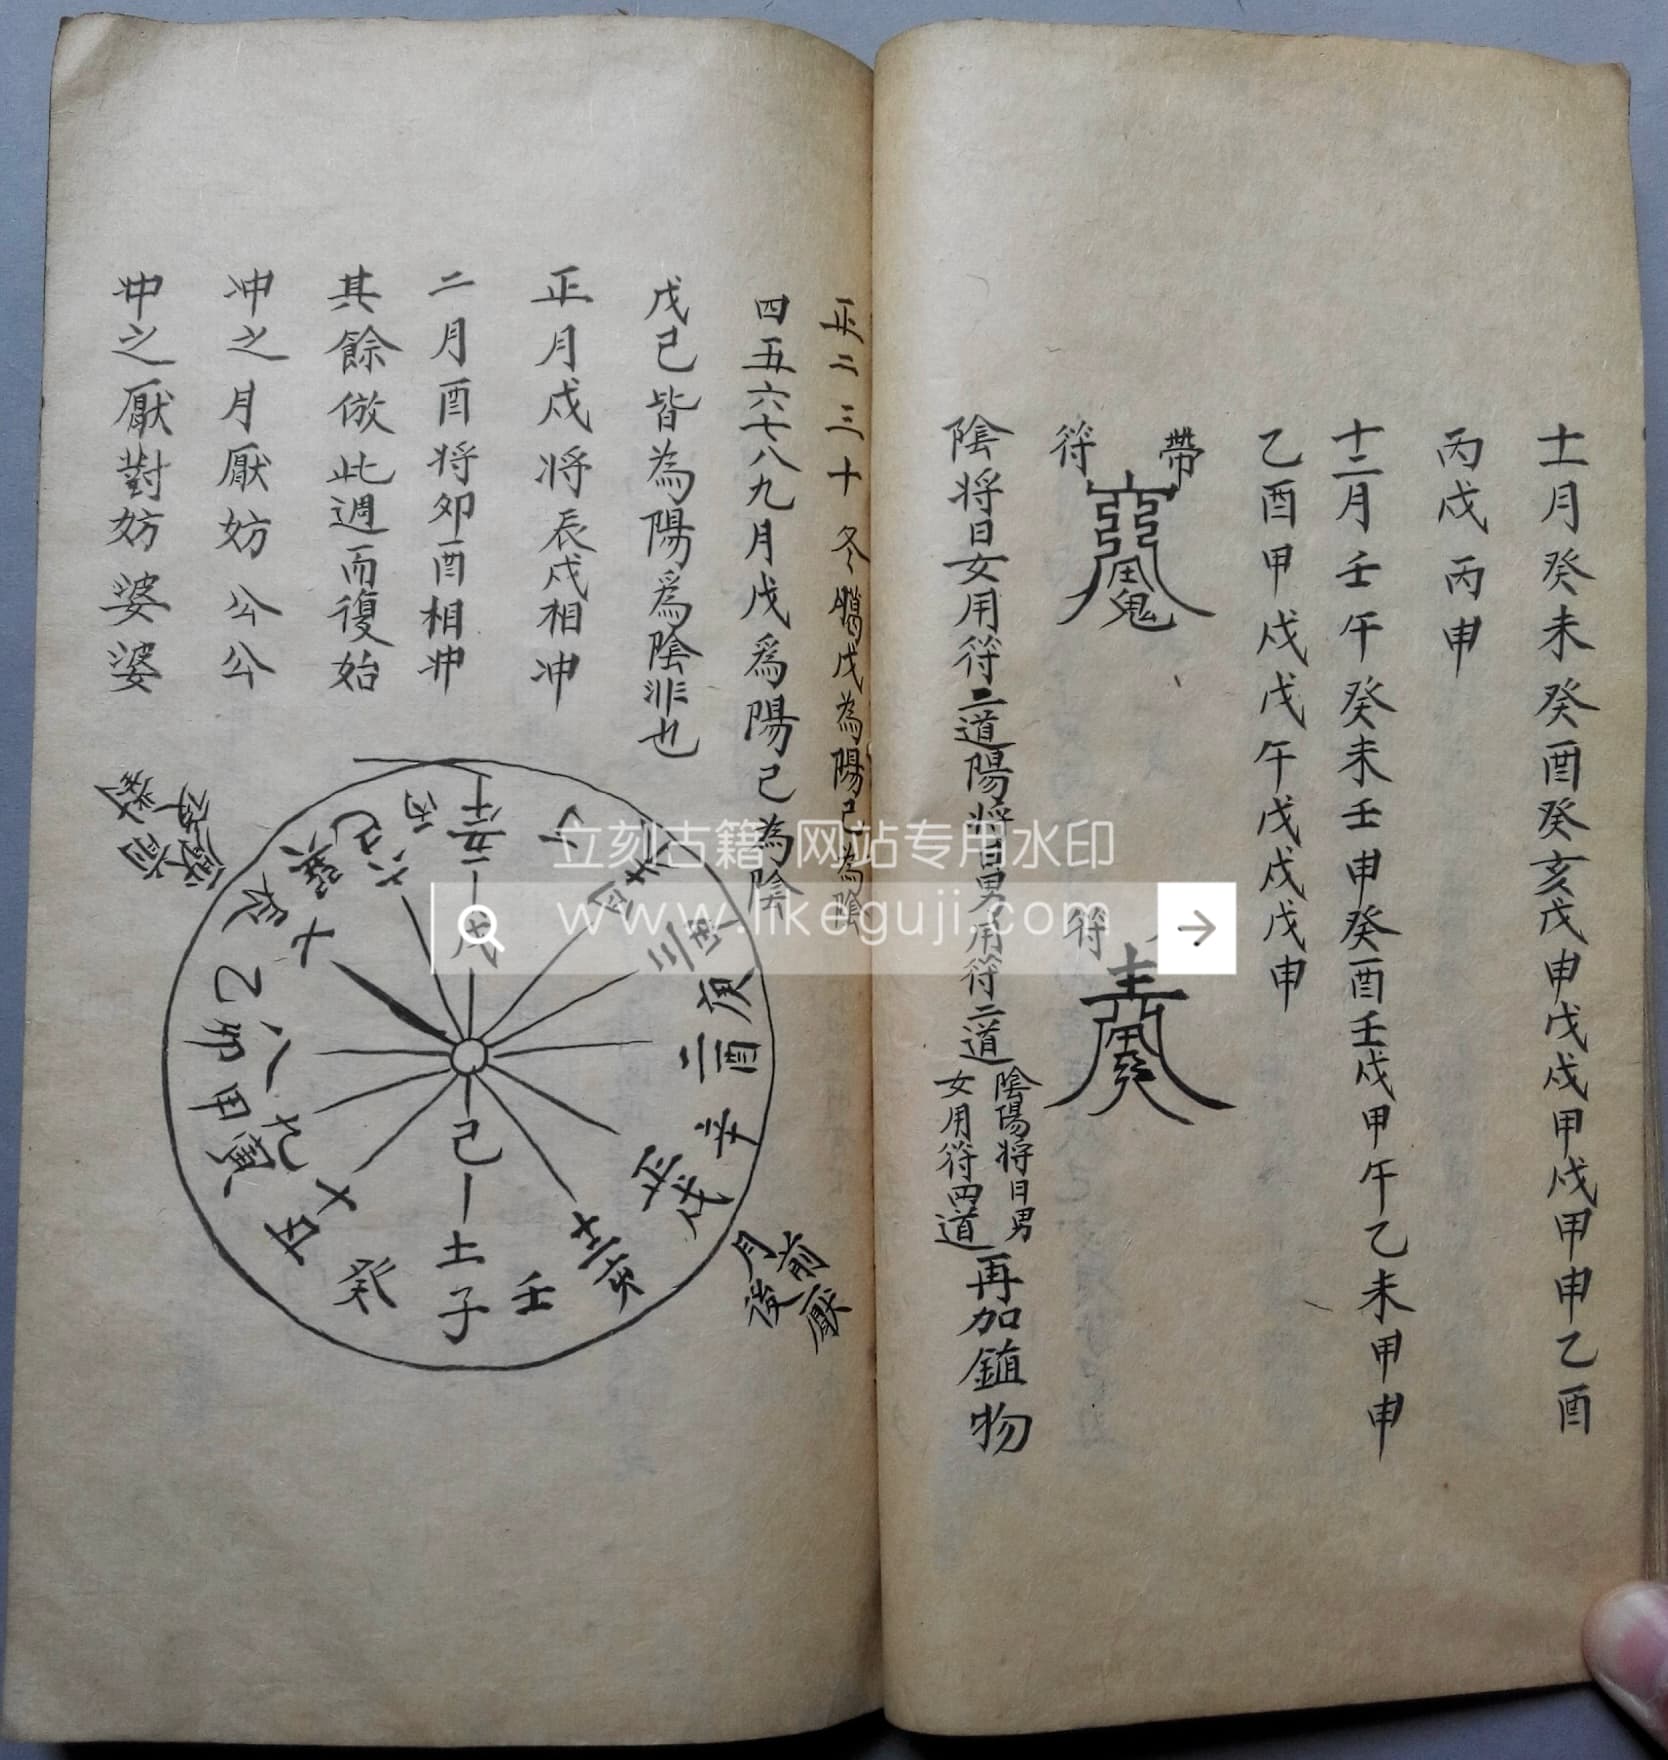 十一月癸未癸酉癸亥戊申戊戌甲戌甲申乙酉
丙戌丙申
十二月壬午癸未壬申癸酉壬戌甲午乙未甲申
乙酉甲戌戊午戊戌戊申
帶
符
符
陰將日女用符二道陽將日男用符二道
陰陽將日男
女用符両道
再加鎮物
正二三十冬臘戊為陽己為陰
四五六七八九月戊為陽己為陰
戊己皆為陽為陰非也
正月戌將辰戌相冲
二月酉將卯酉相冲
其餘倣此週而復始
冲之月厭妨公公
冲之厭對妨婆婆
午
丙
五
戊
六
巳
巽
辰
七
乙
八
卯
甲
九
寅
十
丑
癸
己
十一
子
壬
十二
亥
正
戌
辛
二
酉
庚
三
四
前厭
月後
立刻古籍-网站专用水印
www.likeguji.com